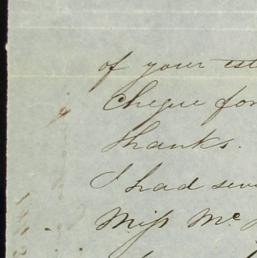 of your
cheque for
thanks.
I had
Miss Mc